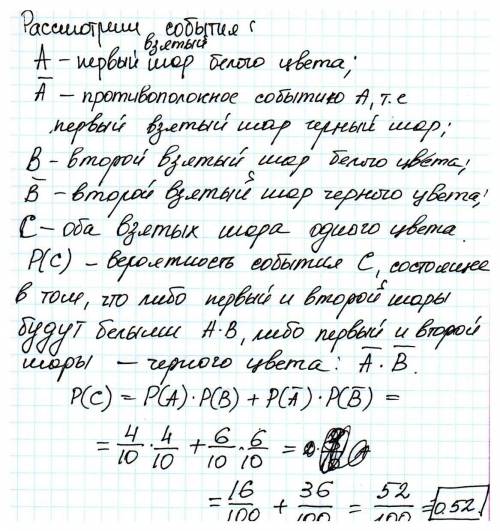 Рассмотрим события:
взятый
A – первый шар белого цвета;
A̅ – противоположное событию A, т.е
первый взятый шар черный шар;
B – второй взятый шар белого цвета;
B̅ – второй взятый шар черного цвета;
C – оба взятых шара одного цвета.
P(C) – вероятность события C, состоящее
в том, что либо первый и второй шары
будут белыми A·B, либо первый и второй
шары – черного цвета: A̅·B̅.
P(C) = P(A)·P(B) + P(A̅)·P(B̅) =
= 4/10 · 4/10 + 6/10 · 6/10 =
= 16/100 + 36/100 = 52/100 = 0.52.